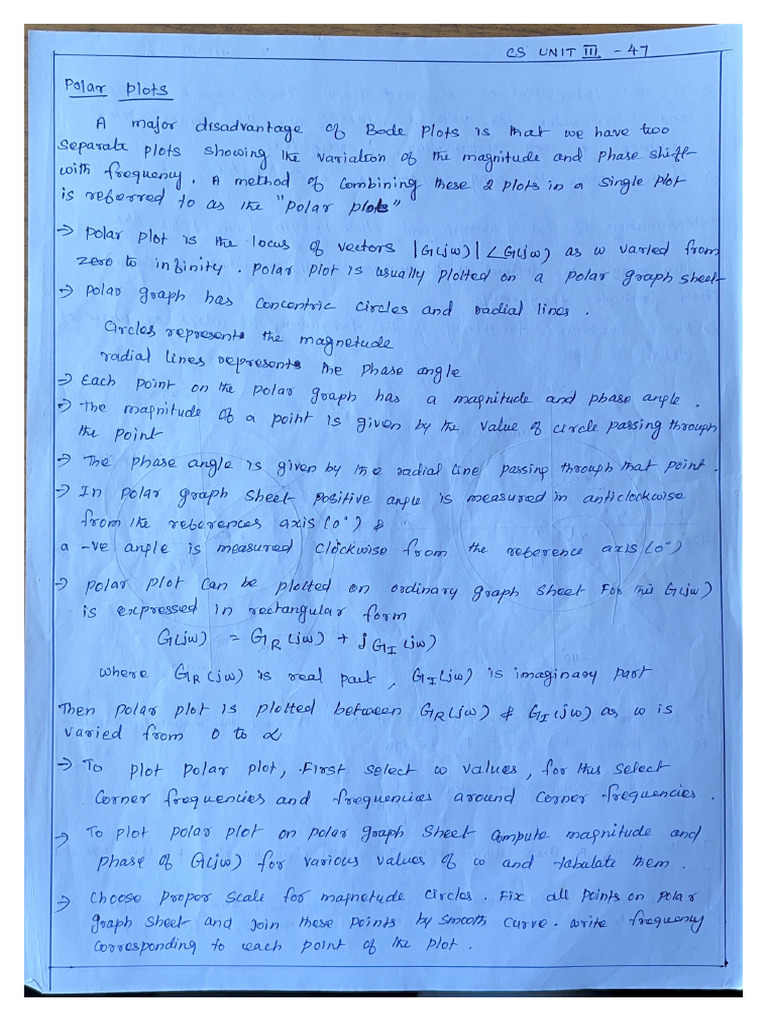 CS UNIT III - 47
Polar Plots
A major disadvantage of Bode Plots is that we have two
separate plots showing the variation of the magnitude and phase shift
with frequency. A method of combining these 2 plots in a single plot
is referred to as the "Polar plots"
→ Polar plot is the locus of vectors |G(jω)| ∠G(jω) as ω varied from
zero to infinity. Polar plot is usually plotted on a polar graph sheet
→ Polar graph has concentric circles and radial lines.
Circles represents the magnetude
radial lines represents the phase angle
→ Each point on the polar graph has a magnitude and phase angle.
→ The magnitude of a point is given by the value of circle passing through
the point
→ The phase angle is given by the radial line passing through that point.
→ In polar graph sheet positive angle is measured in anticlockwise
from the references axis (0°) &
a -ve angle is measured clockwise from the reference axis (0°)
→ Polar plot can be plotted on ordinary graph sheet For this G(jω)
is expressed in rectangular form
G(jω) = G_R (jω) + j G_I (jω)
where G_R (jω) is real part, G_I (jω) is imaginary part
Then polar plot is plotted between G_R (jω) & G_I (jω) as ω is
varied from 0 to α
→ To plot polar plot, First select ω values, for this select
corner frequencies and frequencies around corner frequencies.
→ To plot polar plot on polar graph sheet compute magnitude and
phase of G(jω) for various values of ω and tabulate them.
→ choose proper scale for magnetude circles. Fix all points on polar
graph sheet and join these points by smooth curve. write frequency
corresponding to each point of the plot.